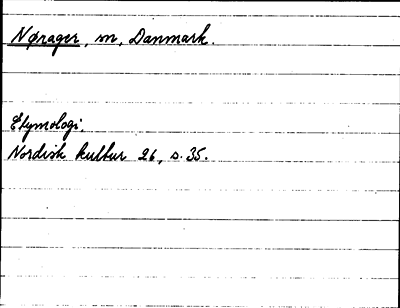 Nørager, m, Danmark.
Etymologi.
Nordisk kultur 26, s. 35.